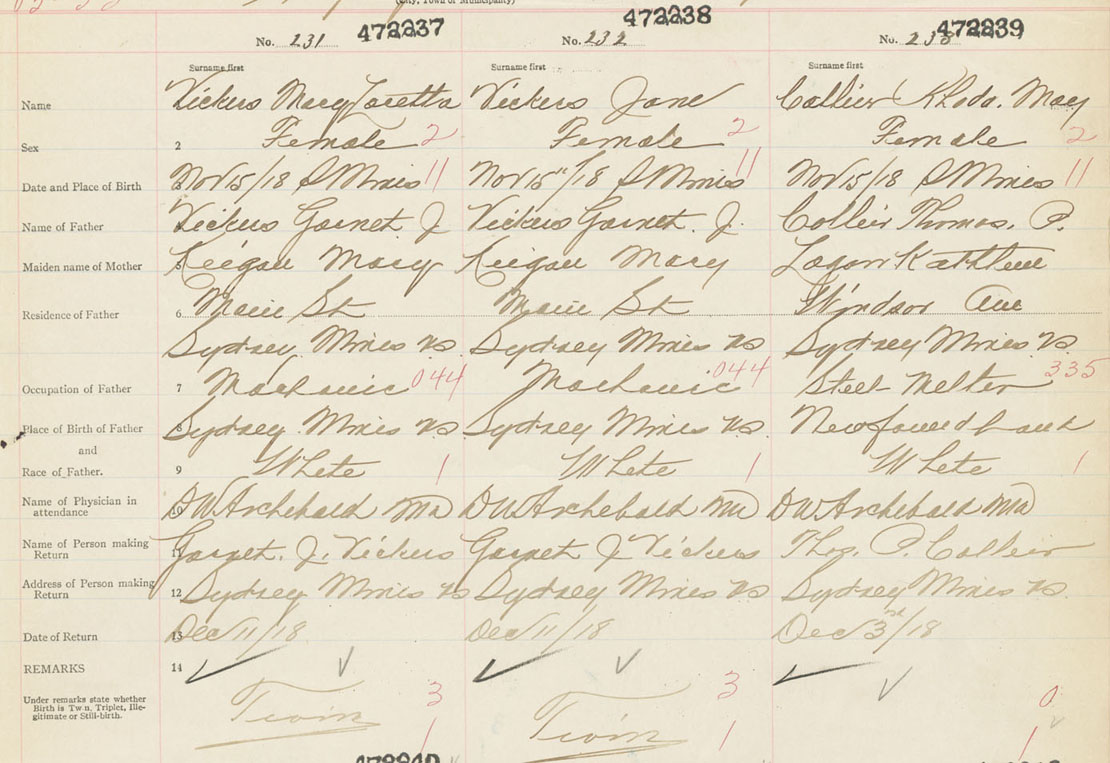 (City, Town or Municipality)
472237 472238 472239
No. 231 No. 232 No. 233
Surname first Surname first Surname first
Name Vickers Mary Loretta Vickers Jane Collier Rhoda. May
Sex 2 Female 2 Female 2 Female 2
Date and Place of Birth Nov 15/18 S Mines 11 Nov 15"/18 S Mines 11 Nov 15/18 S Mines 11
Name of Father Vickers Garnet. J Vickers Garnet. J. Collier Thomas. P.
Maiden name of Mother 5 Keegan Mary Keegan Mary Logan Kathleen
Residence of Father 6 Main St Main St Windsor Ave
Sydney Mines NS. Sydney Mines NS Sydney Mines NS.
Occupation of Father 7 Machanic 044 Machanic 044 Steel Melter 335
Place of Birth of Father 8 Sydney Mines NS Sydney Mines NS. Newfoundland
and
Race of Father. 9 White 1 White 1 White 1
Name of Physician in
attendance 10 DW Archebald MD DW Archebald MD DW Archebald MD
Name of Person making
Return 11 Garnet. J. Vickers Garnet J Vickers Thos. P. Collier
Address of Person making
Return 12 Sydney Mines NS Sydney Mines NS Sydney Mines NS.
Date of Return 13 Dec 11/18 Dec 11/18 Dec 3rd/18
REMARKS 14
Under remarks state whether
Birth is Twin, Triplet, Ille-
gitimate or Still-birth.
Twin 3 Twin 3 0
1 1 1